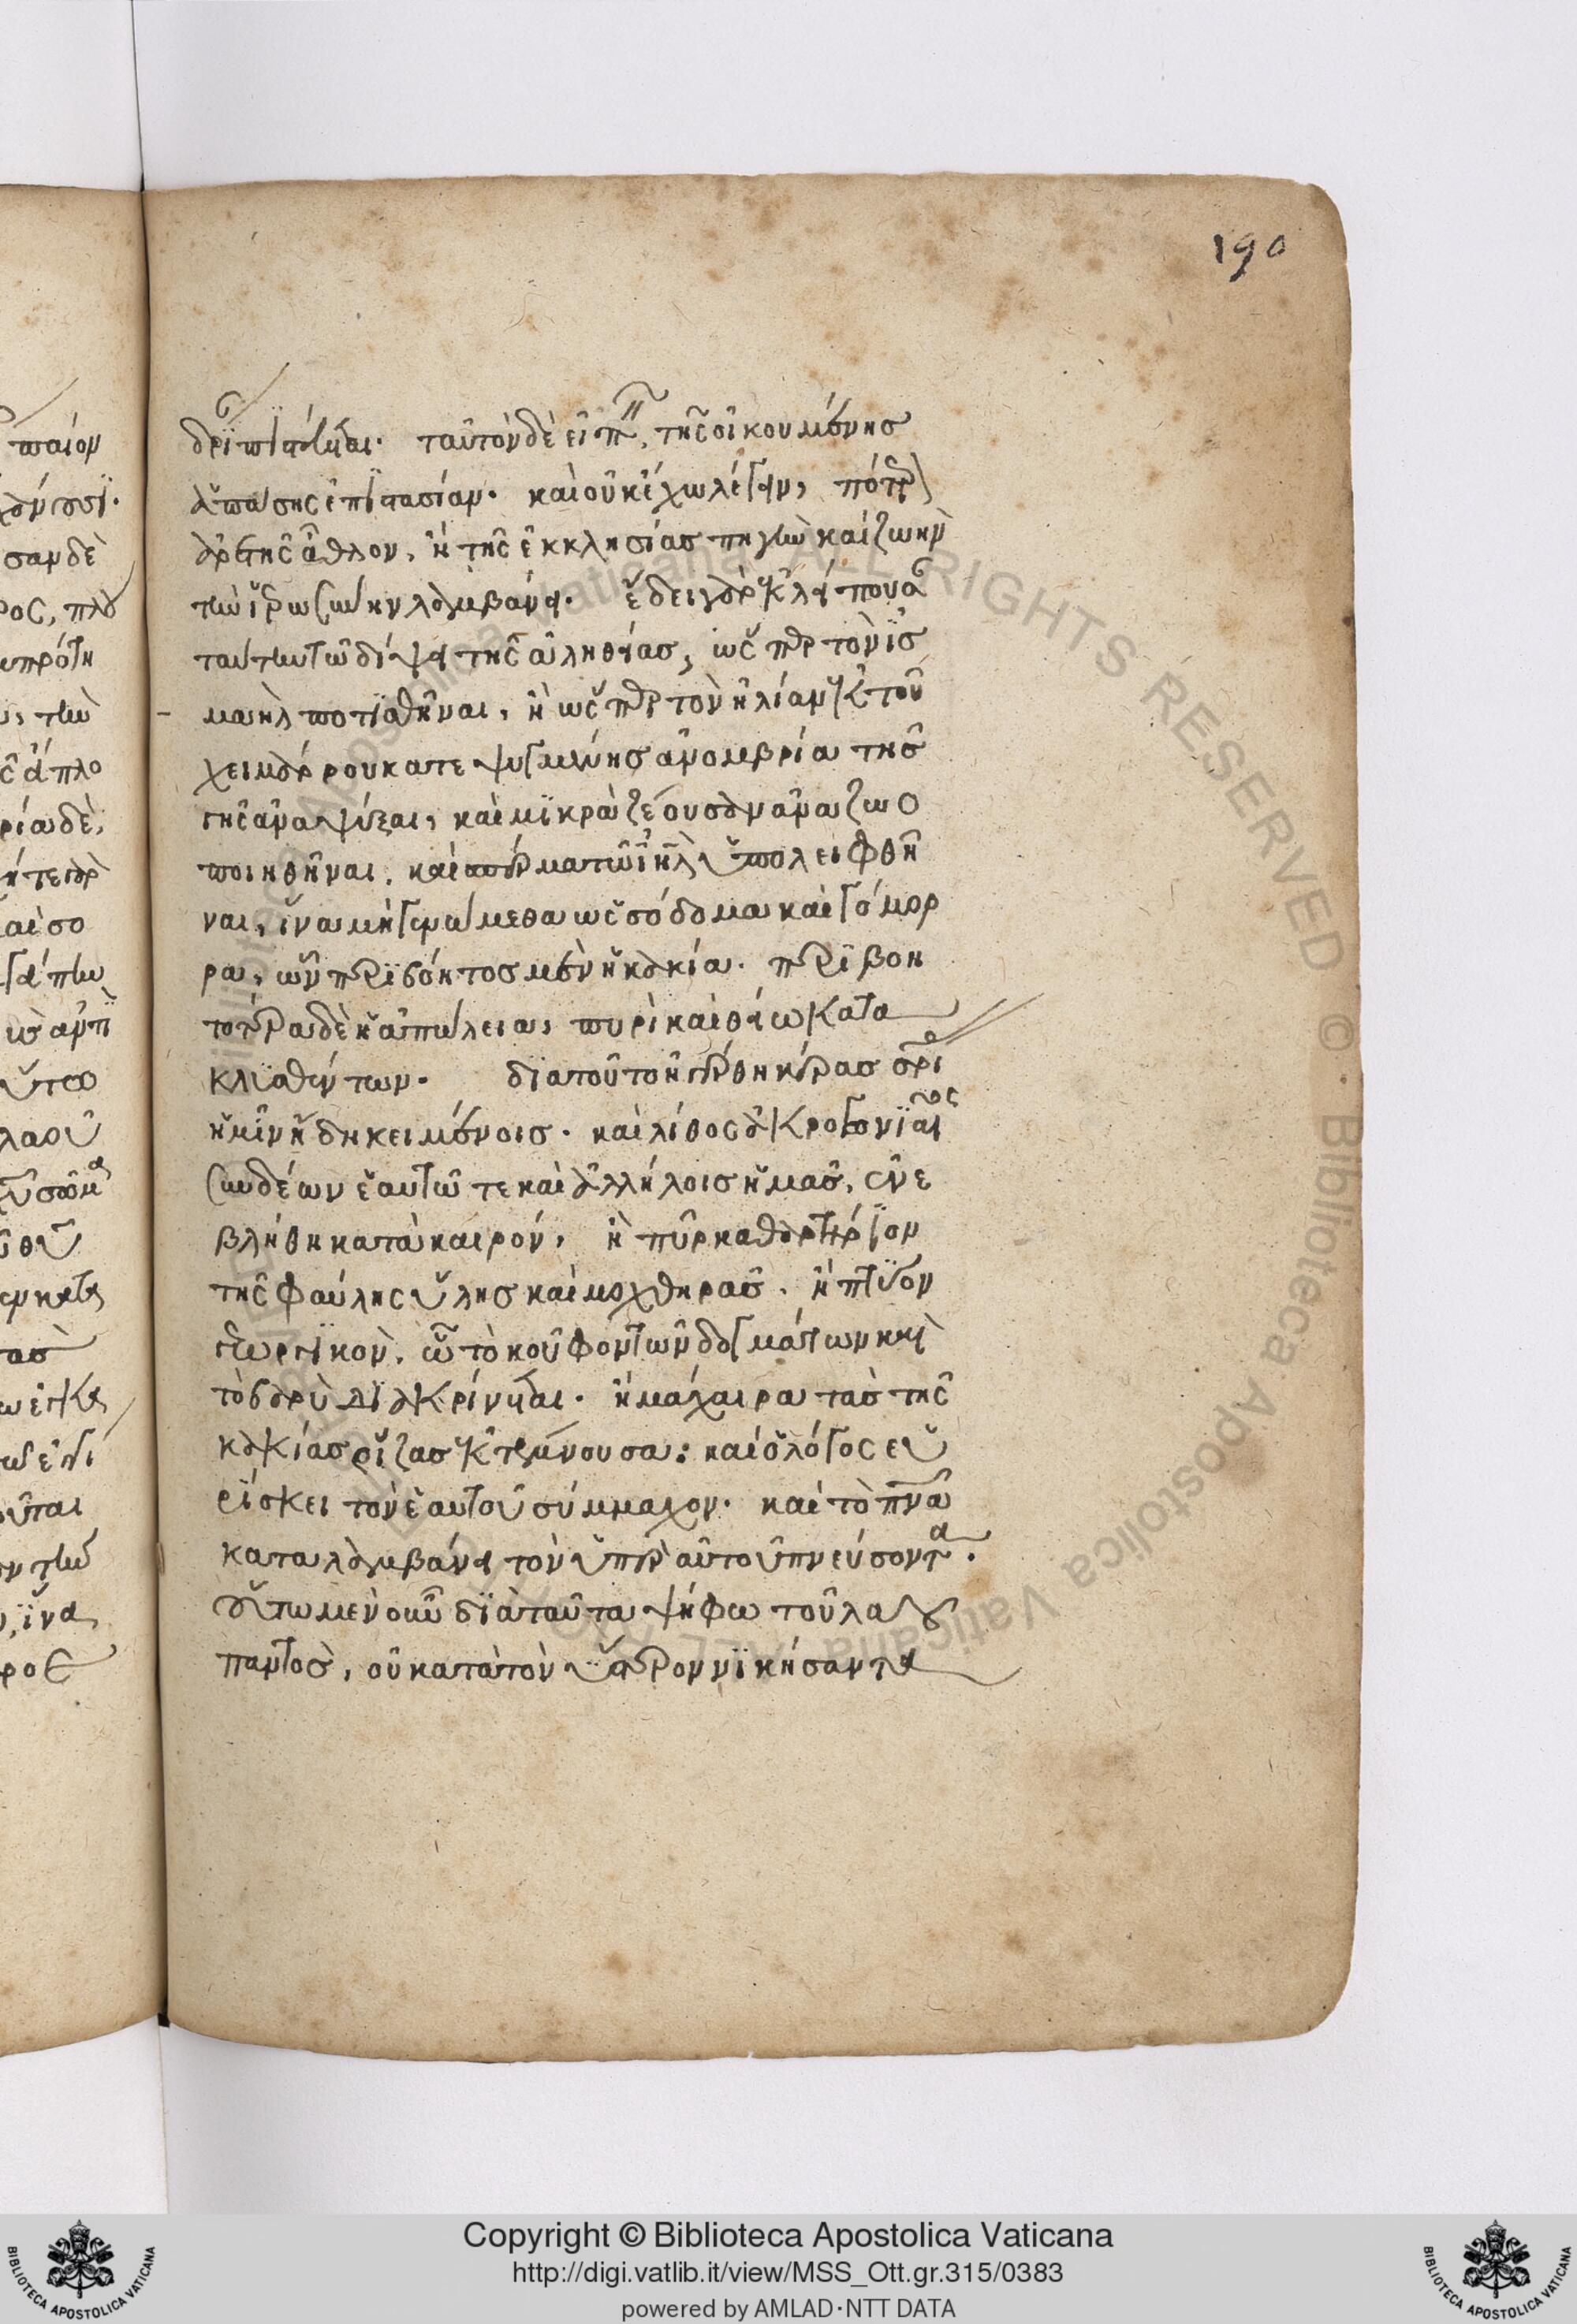 190
δρι πιστεύεται. ταυτὸν δὲ εἰπεῖν, τῆς οἰκουμένης
ἁπάσης ἐπιστασίαν. καὶ οὐκ ἔχω λέγειν, πότερον
ἀρετῆς ἆθλον, ἢ τῆς ἐκκλησίας πηγὴν καὶ ζωὴν
τὴν ἱερωσύνην λαμβάνει. ἔδει γὰρ ἐκλείπουσαν
ταύτην τῷ δίψει τῆς ἀληθείας, ὥσπερ τὸν ἰσ
μαὴλ ποτισθῆναι, ἢ ὥσπερ τὸν ἠλίαν ἐκ τοῦ
χειμάρρου κατεψυγμένης ἀνομβρία τῆς
γῆς ἀναψύξαι, καὶ μικρὰ ζέουσαν ἀναζωο
ποιηθῆναι, καὶ σπέρμα τῷ ἰηλ ὑπολειφθῆ
ναι, ἵνα μὴ γενώμεθα ὡς σόδομα καὶ γόμορ
ρα, ὧν περιβόητος μὲν ἡ κακία. περιβοη
τοτέρα δὲ ἡ ἀπώλεια, πυρὶ καὶ θείω κατα
κλυσθέντων. διὰ τοῦτο ἠγέρθη κέρας σρι
ἡμῖν ἤδη κειμένοις. καὶ λίθος ἀκρογωνιαῖος
συνδέων ἑαυτῷ τε καὶ ἀλλήλοις ἡμᾶς, ἐνε
βλήθη κατὰ καιρόν, ἢ πῦρ καθαρτήριον
τῆς φαύλης ὕλης καὶ μοχθηρᾶς. ἢ πτύον
γεωργικὸν, ᾧ τὸ κοῦφον τῶν δογμάτων καὶ
τὸ βαρὺ διακρίνεται. ἢ μάχαιρα τὰς τῆς
κακίας ῥίζας ἐκτέμνουσα: καὶ ὁ λόγος εὑ
ρίσκει τὸν ἑαυτοῦ σύμμαχον. καὶ τὸ πνα
καταλαμβάνει τὸν ὑπὲρ αὐτοῦ πνεύσοντα.
οὕτω μὲν οὖν διὰ ταῦτα ψήφω τοῦ λαοῦ
παντὸς, οὐ κατὰ τὸν ὕστερον νικήσαντα
Copyright © Biblioteca Apostolica Vaticana
http://digi.vatlib.it/view/MSS_Ott.gr.315/0383
powered by AMLAD·NTT DATA